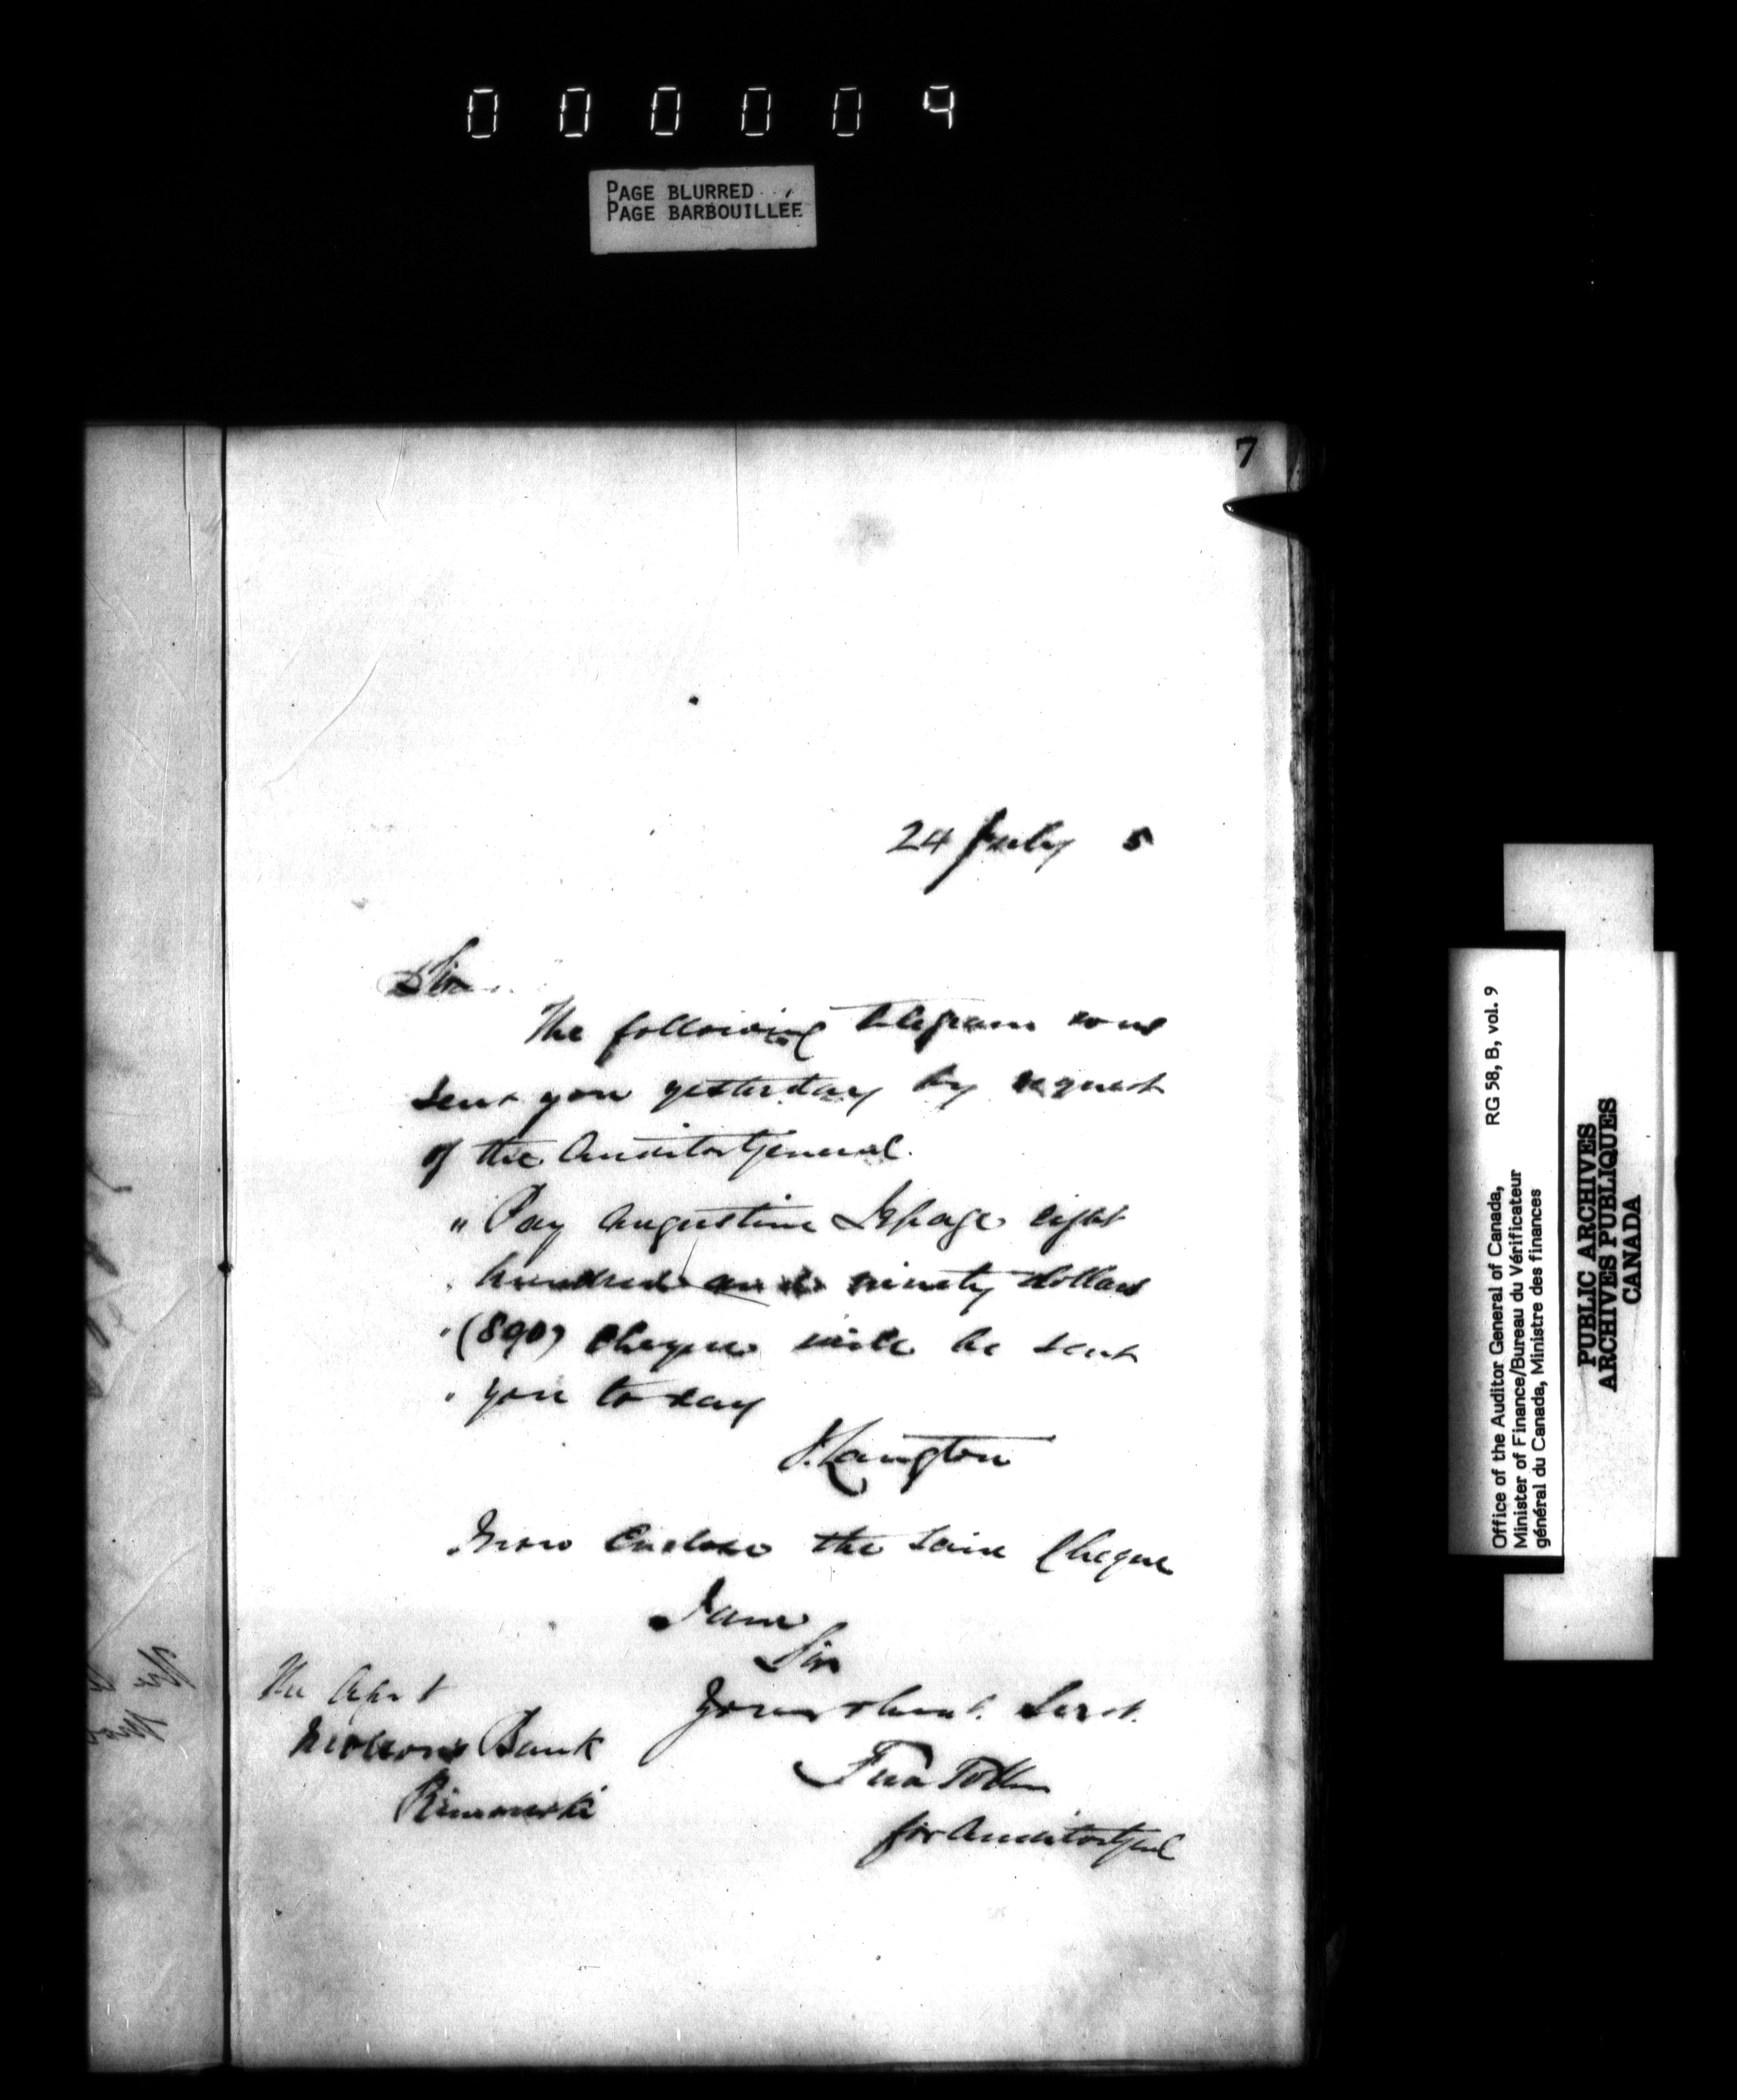 0 0 0 0 0 9
PAGE BLURRED
PAGE BARBOUILLÉE
7
24 July 5
Sir
The following telegram was
sent you yesterday by request
of the Auditor General.
" Pay Augustine Lepage eight
" hundred and ninety dollars
" (890) Cheque will be sent
" you to day
J. Langton
I now Enclose the said Cheque
I am
Sir
Your obent. Servt.
for Auditor Genl
The Agent
Molsons Bank
Rimouski
Office of the Auditor General of Canada, RG 58, B, vol. 9
Minister of Finance/Bureau du Vérificateur
général du Canada, Ministre des finances
PUBLIC ARCHIVES
ARCHIVES PUBLIQUES
CANADA